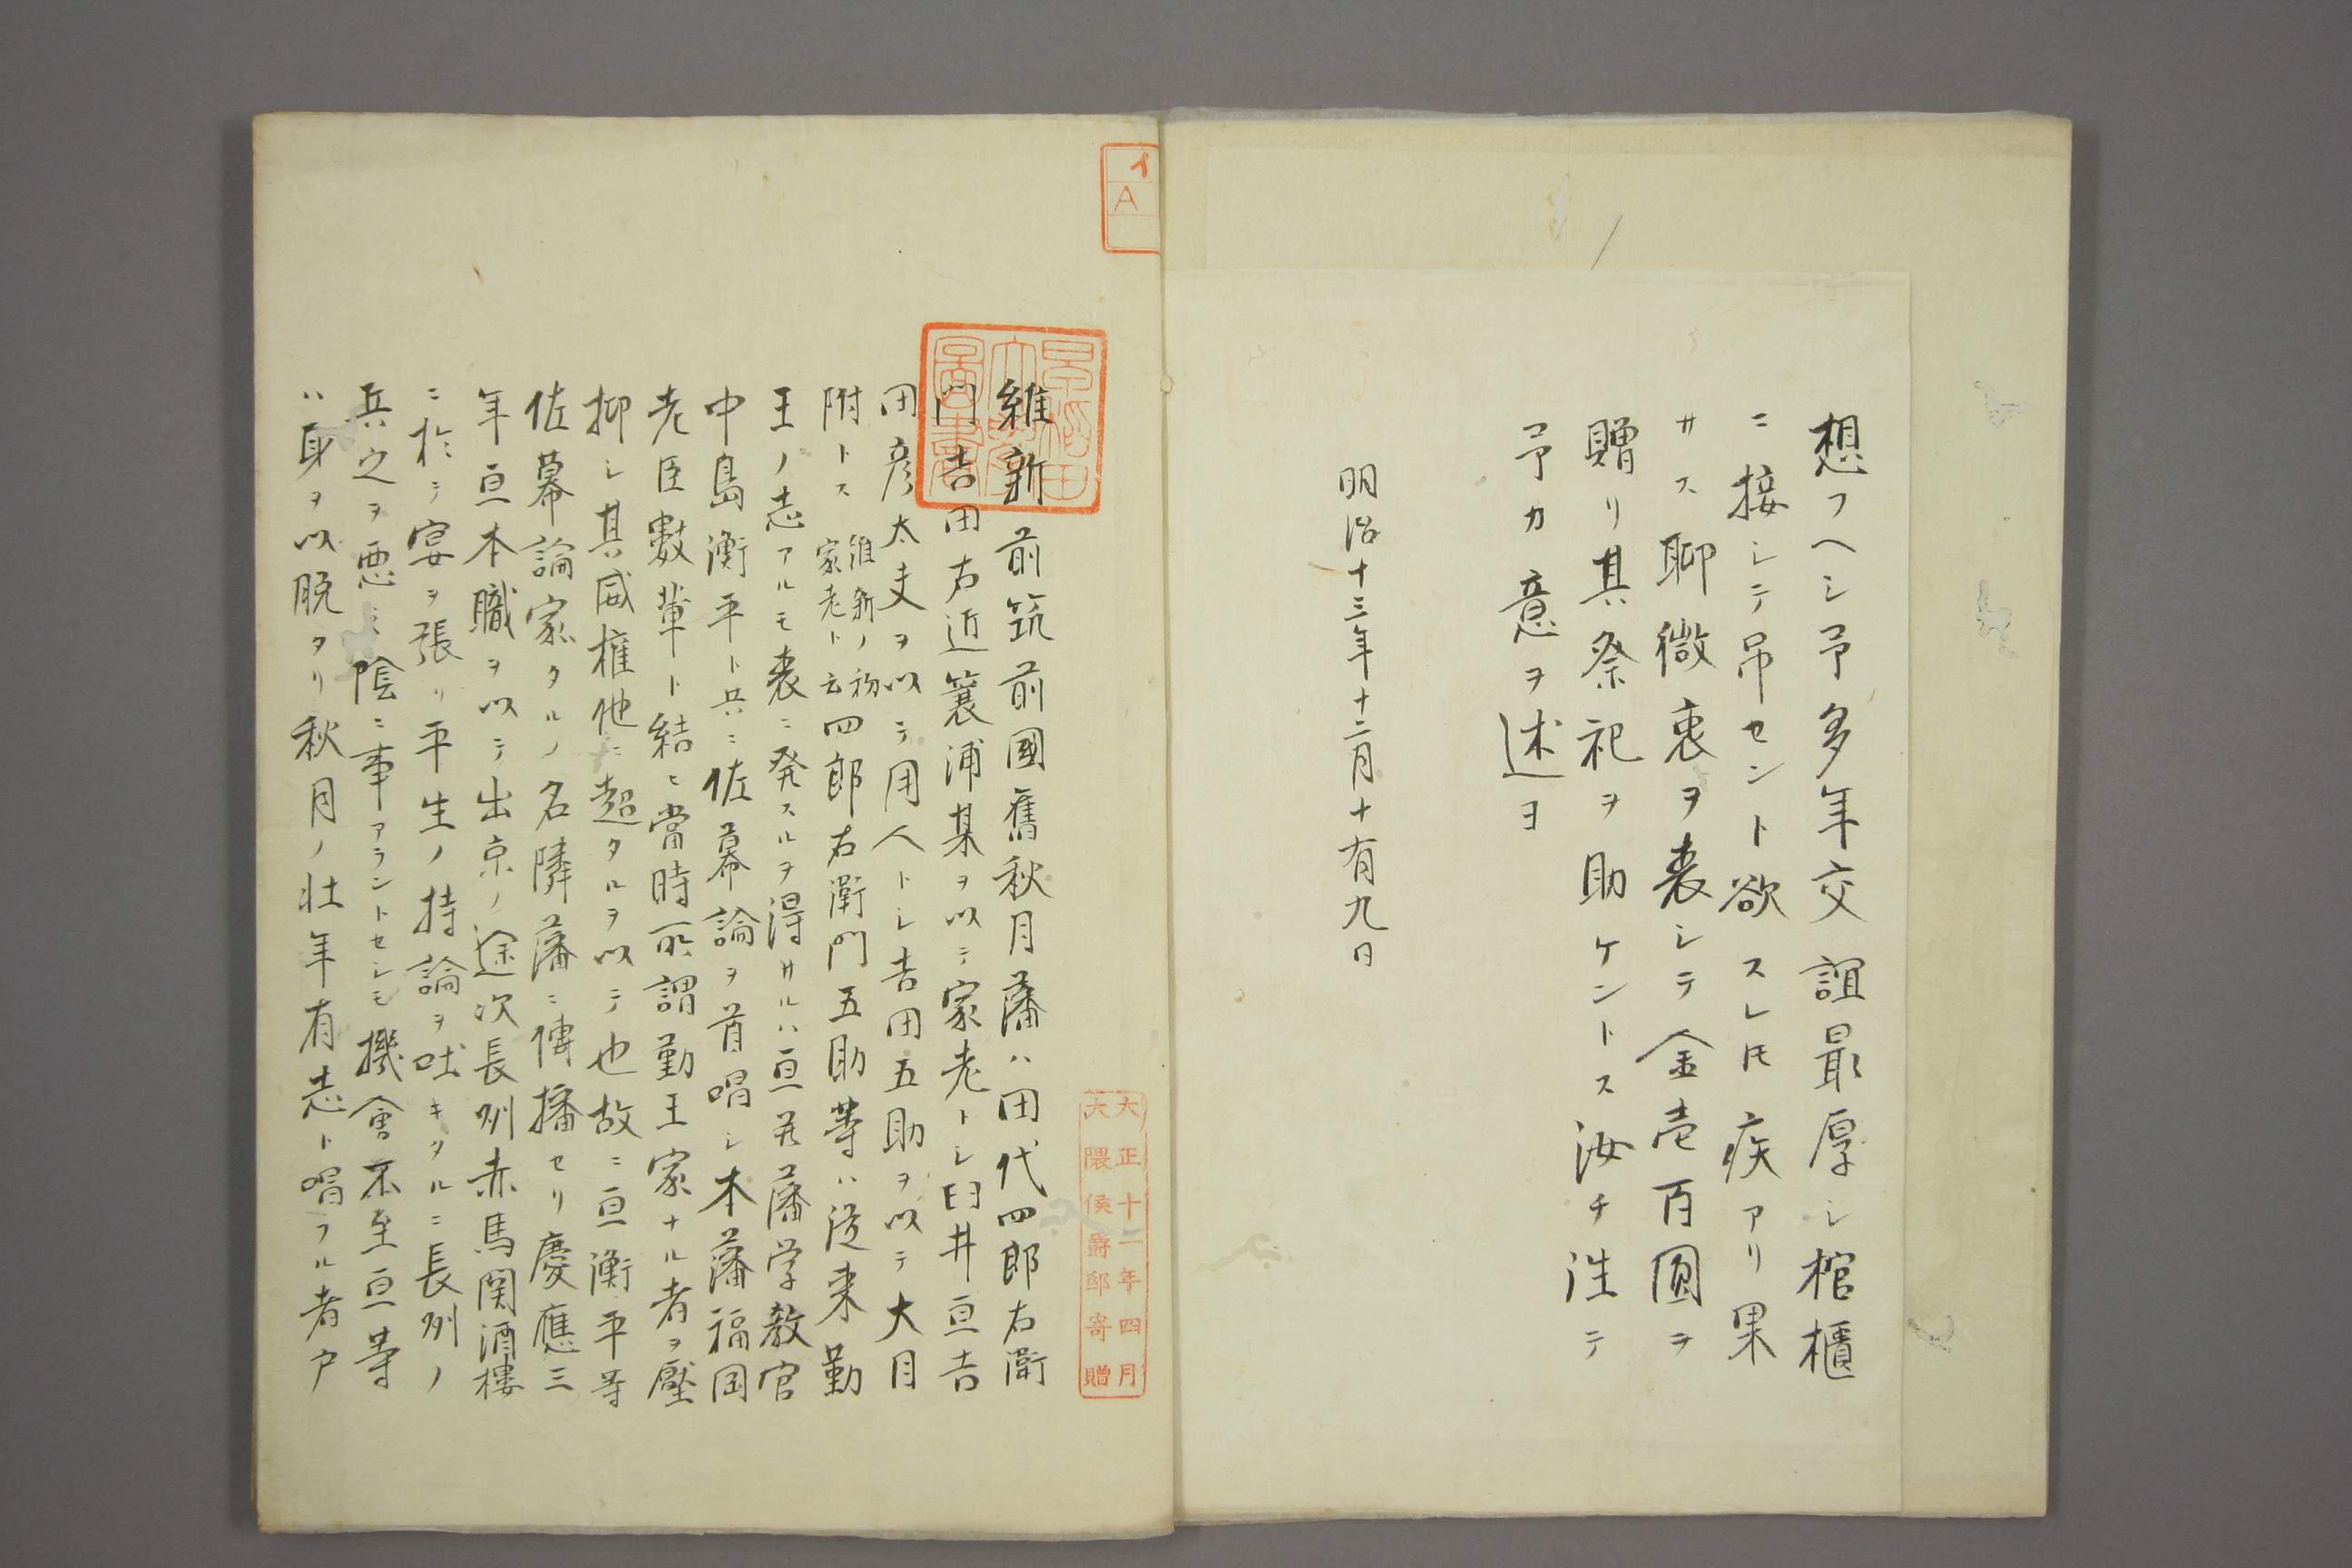 想フヘシ予多年交誼最厚シ棺櫃
ニ接シテ吊セント欲スレ𪜈疾アリ果
サス聊微衷ヲ表シテ金壱百圓ヲ
贈リ其祭祀ヲ助ケントス汝チ往テ
予カ意ヲ述ヨ
明治十三年十二月十有九日
イ
A
大正十一年四月
大隈侯爵邸寄贈
早稲田
大學
圖書
維新前筑前國舊秋月藩ハ田代四郎右衛
門吉田右近簑浦某ヲ以テ家老トシ臼井亘吉
田彦太夫ヲ以テ用人トシ吉田五助ヲ以テ大目
附トス維新ノ初
家老ト云四郎右衛門五助等ハ従来勤
王ノ志アルモ表ニ発スルヲ得サルハ亘并藩学教官
中島衡平ト共ニ佐幕論ヲ首唱シ本藩福岡
老臣數輩ト結ヒ當時所謂勤王家ナル者ヲ壓
抑シ其威権他ニ超タルヲ以テ也故ニ亘衡平等
佐幕論家タルノ名隣藩ニ傳播セリ慶應三
年亘本職ヲ以テ出京ノ途次長州赤馬関酒樓
ニ於テ宴ヲ張リ平生ノ持論ヲ吐キタルニ長州ノ
兵之ヲ悪ミ陰ニ事アラントセシモ機會不至亘等
ハ身ヲ以脱タリ秋月ノ壮年有志ト唱フル者戸